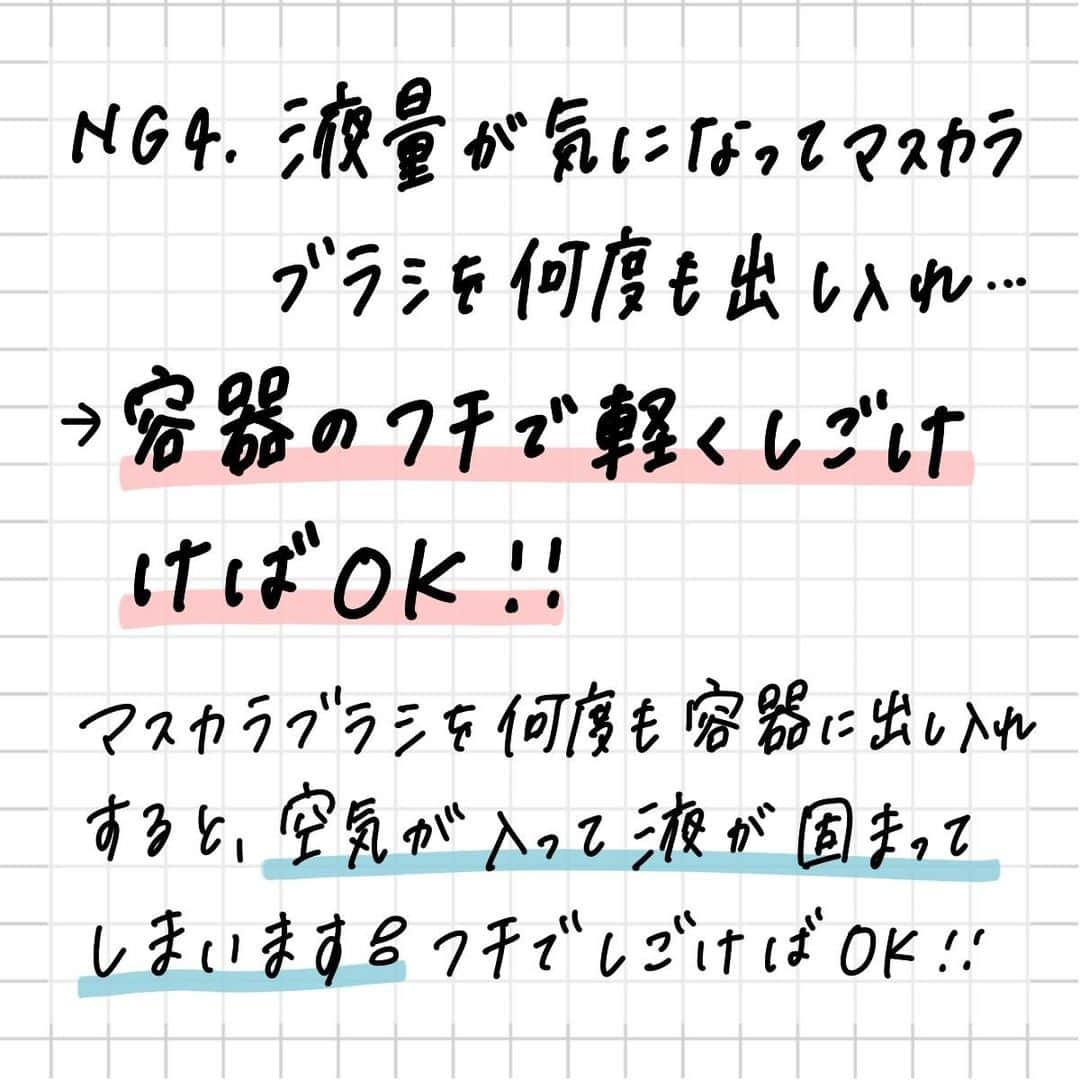 NG4. 液量が気になってマスカラ
ブラシを何度も出し入れ…
→容器のフチで軽くしごけ
けばOK!!
マスカラブラシを何度も容器に出し入れ
すると、空気が入って液が固まって
しまいます。フチでしごけばOK!!